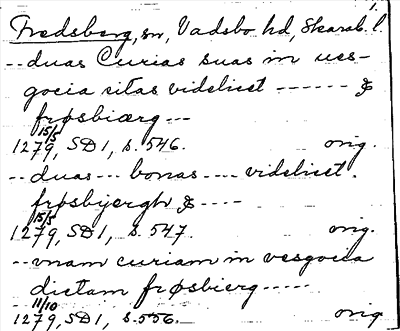 1.
Fredsberg, sn, Vadsbo hd, Skarab. l.
-- duas Curias suas in ves-
gocia sitas videlicet ------ &
frøsbiærg ---
15/5
1279, SD 1, s. 546. orig.
-- duas --- bonas ---- videlicet.
frøsbjergh & ----
15/5
1279, SD 1, s. 547. orig.
-- vnam curiam in vesgocia
dictam frøsbierg -----
11/10
1279, SD 1, s. 556. orig